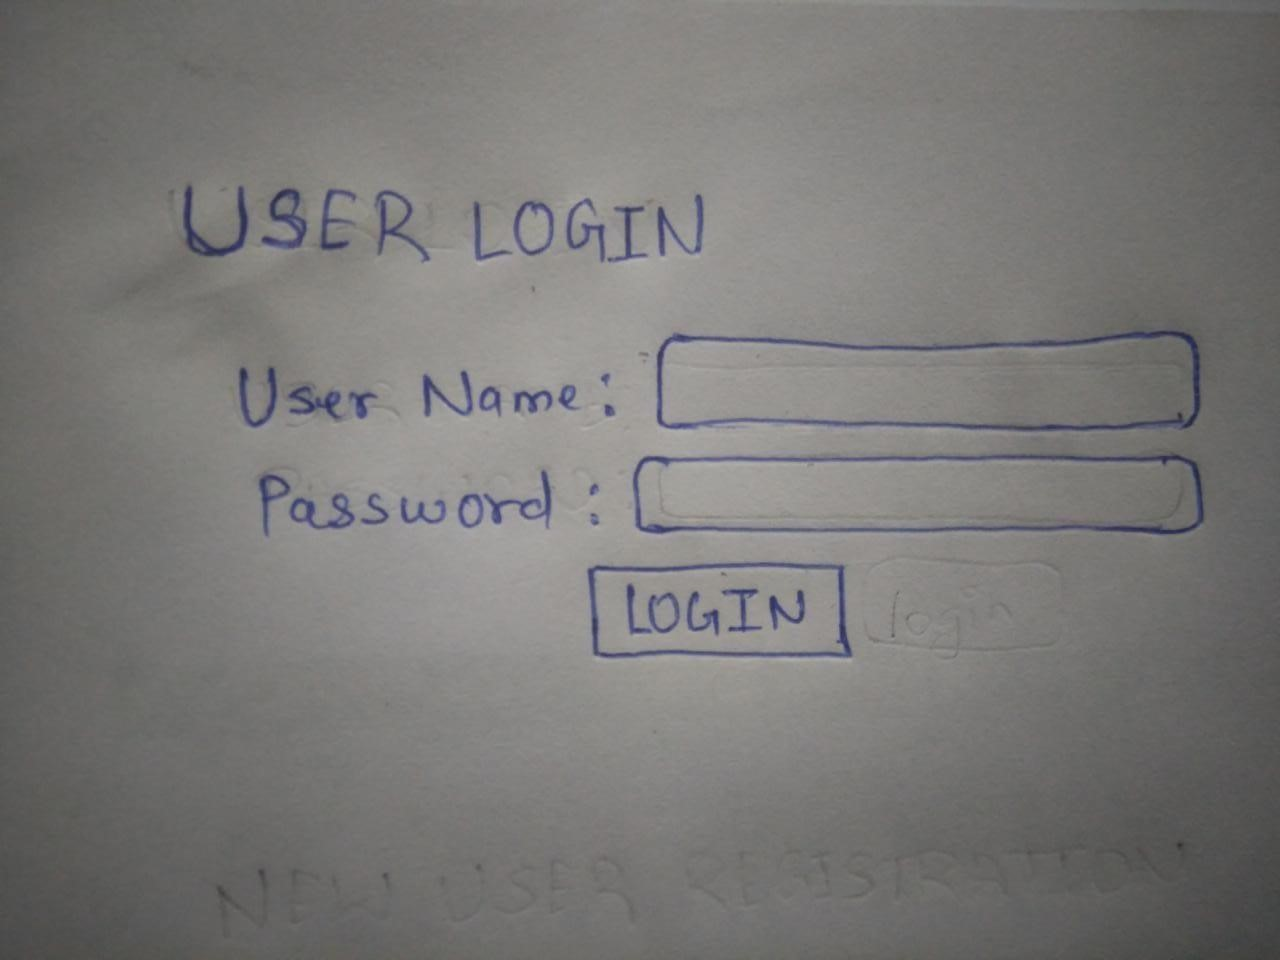 USER LOGIN
User Name:
Password:
LOGIN login
NEW USER REGISTRATION